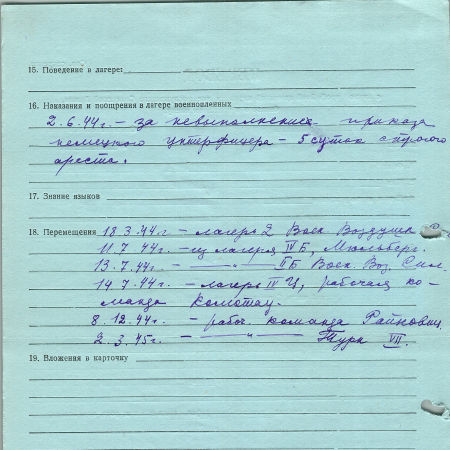 15. Поведение в лагере:
16. Наказания и поощрения в лагере военнопленных
2.6.44г. – за невыполнение приказа
немецкого унтерфицера – 5 суток строгого
ареста.
17. Знание языков
18. Перемещения 18.3.44г. – лагерь 2 Воен. Воздушн.
11.7.44г. – из лагеря IV Б, Мюльберг.
13.7.44г. – — „ — II Б Воен. Воз. Сил.
14.7.44г. – лагерь IV Ц, рабочая ко-
манда Комотау.
8.12.44г. – рабоч. команда Райнович.
2.3.45г. – — „ — Турн VII.
19. Вложения в карточку